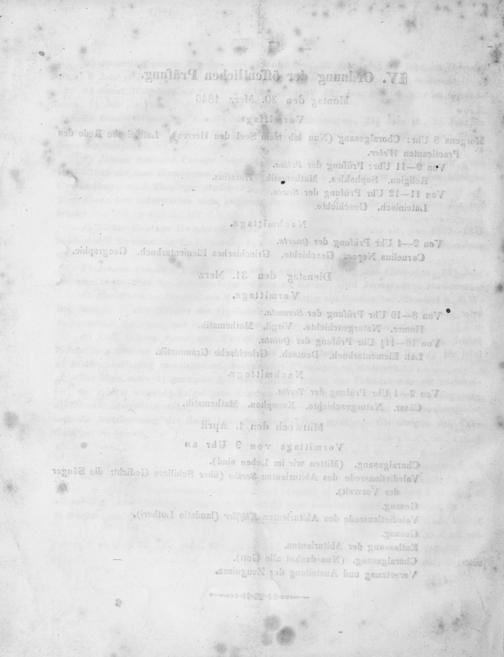 IV. Ordnung der öffentlichen Prüfung.
Montag den 30. Merz 1840
Vormittags.
Morgens 8 Uhr: Choralgesang (Nun lob mein Seel den Herren), Rede des
Practicanten
Von 9—11 Uhr: Prüfung der Prima.
Religion, Sophokles, Mathematik,
Von 11—12 Uhr Prüfung der
Lateinisch, Geschichte.
Nachmittags.
Von 2—4 Uhr Prüfung der Quarta.
Cornelius Nepos, Geschichte, Griechisches Elementarbuch, Geographie.
Dienstag den 31. Merz
Vormittags.
Von 8—10 Uhr Prüfung der Secunda.
Homer, Naturgeschichte, Virgil, Mathematik.
Von 10—11½ Uhr Prüfung der Quinta.
Lat. Elementarbuch, Deutsch, Griechische Grammatik.
Nachmittags.
Von 2—4 Uhr Prüfung der Tertia.
Cäsar, Naturgeschichte, Xenophon, Mathematik.
Mittwoch den 1. April
Vormittags von 9 Uhr an
Choralgesang. (Mitten wir im Leben sind).
Valedictionsrede des Abiturienten (über Schillers Gedicht: die Sänger
der Vorwelt).
Gesang.
Valedictionsrede des Abiturienten (laudatio Lutheri).
Gesang.
Entlassung der Abiturienten.
Choralgesang. (Nun danket alle Gott).
Versetzung und Austeilung der Zeugnisse.